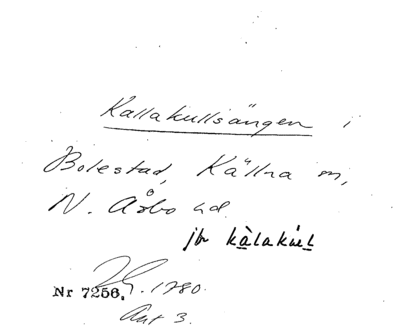 Kallakullsängen i
Bolestad, Källna sn,
N. Åsbo hd.
jfr kàlakul
Nr 7256. 1780.
Akt 3.